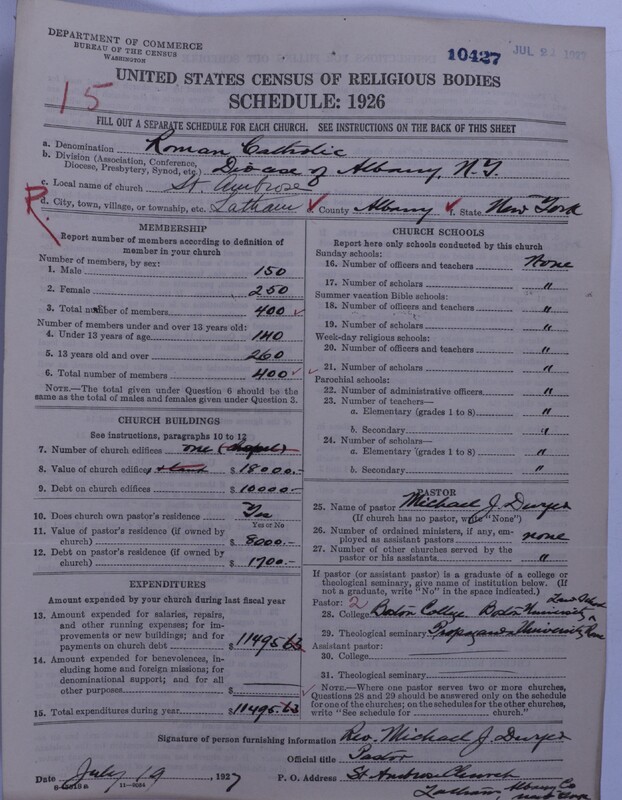 DEPARTMENT OF COMMERCE
BUREAU OF THE CENSUS
WASHINGTON
10427
JUL 21 1927
15
UNITED STATES CENSUS OF RELIGIOUS BODIES
SCHEDULE: 1926
FILL OUT A SEPARATE SCHEDULE FOR EACH CHURCH. SEE INSTRUCTIONS ON THE BACK OF THIS SHEET
a. Denomination Roman Catholic
b. Division (Association, Conference, Diocese, Presbytery, Synod, etc.) Diocese of Albany, N.Y.
c. Local name of church St. Ambrose
R
d. City, town, village, or township, etc. Latham County Albany f. State New York
MEMBERSHIP
Report number of members according to definition of
member in your church
Number of members, by sex:
1. Male 150
2. Female 250
3. Total number of members 400
Number of members under and over 13 years old:
4. Under 13 years of age 140
5. 13 years old and over 260
6. Total number of members 400
NOTE.—The total given under Question 6 should be
same as the total of males and females given under Question 3.
CHURCH BUILDINGS
See instructions, paragraphs 10 to 12
7. Number of church edifices one (chapel)
8. Value of church edifices $ 18000.-
9. Debt on church edifices $ 10000.-
10. Does church own pastor's residence Yes
Yes or No
11. Value of pastor's residence (if owned by
church) $ 8000.-
12. Debt on pastor's residence (if owned by
church) $ 1700.-
EXPENDITURES
Amount expended by your church during last fiscal year
13. Amount expended for salaries, repairs,
and other running expenses; for im-
provements or new buildings; and for
payments on church debt $ 11495.63
14. Amount expended for benevolences,
including home and foreign missions; for
denominational support; and for all
other purposes $
15. Total expenditures during year $ 11495.63
CHURCH SCHOOLS
Report here only schools conducted by this church
Sunday schools:
16. Number of officers and teachers None
17. Number of scholars "
Summer vacation Bible schools:
18. Number of officers and teachers "
19. Number of scholars "
Week-day religious schools:
20. Number of officers and teachers "
21. Number of scholars "
Parochial schools:
22. Number of administrative officers "
23. Number of teachers—
a. Elementary (grades 1 to 8) "
b. Secondary "
24. Number of scholars—
a. Elementary (grades 1 to 8) "
b. Secondary "
PASTOR
25. Name of pastor Michael J. Dwyer
(If church has no pastor, write "None")
26. Number of ordained ministers, if any, em-
ployed as assistant pastors none
27. Number of other churches served by the
pastor or his assistants "
If pastor (or assistant pastor) is a graduate of a college or
theological seminary, give name of institution below. (If
not a graduate, write "No" in the space indicated.)
Pastor: 2 Law School
28. College Boston College. Boston University
29. Theological seminary Propaganda University Rome
Assistant pastor:
30. College
31. Theological seminary
NOTE.—Where one pastor serves two or more churches,
Questions 28 and 29 should be answered only on the schedule
for one of the churches; on the schedules for the other churches,
write "See schedule for ______ church."
Signature of person furnishing information Rev. Michael J. Dwyer
Official title Pastor
Date July 19, 1927 P. O. Address St Ambrose Church
11—9034 Latham, Albany Co
New York